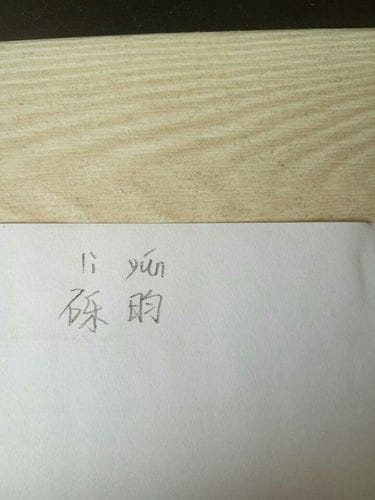 li yún
砾昀